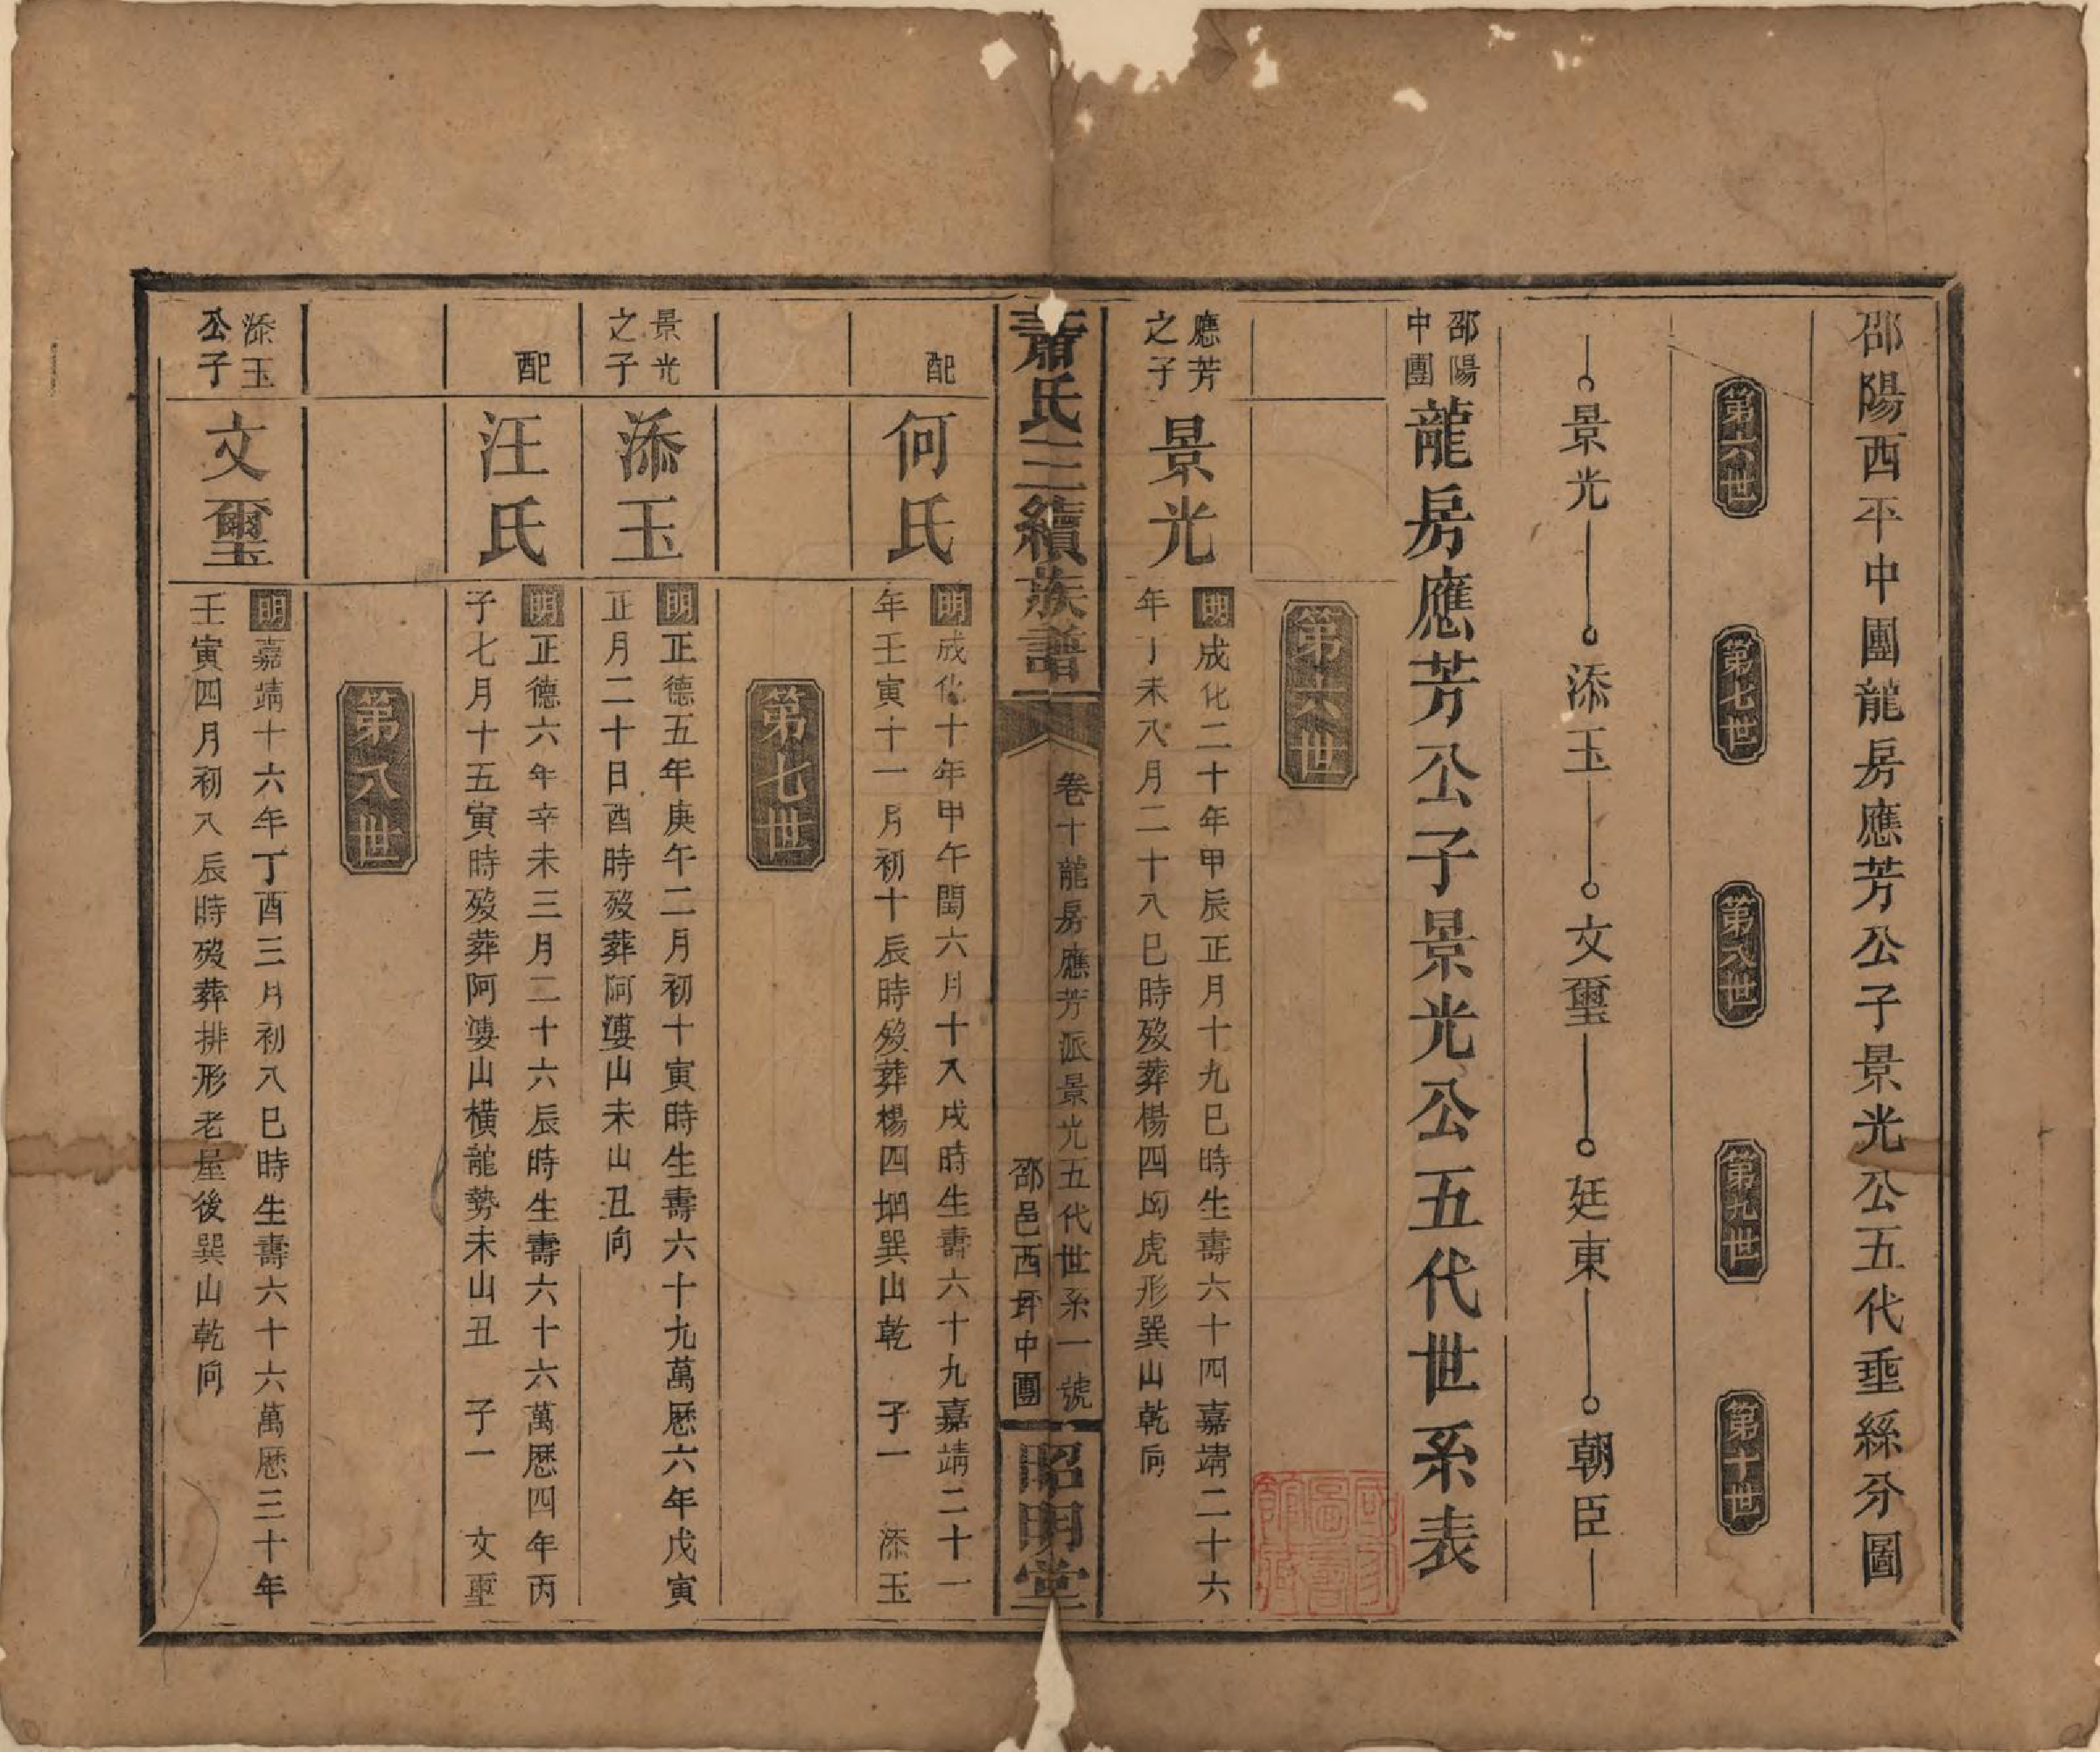 邵陽西平中團龍房應芳公子景光公五代垂絲分圖
第六世
第七世
第八世
第九世
第十世
景光
添玉
文璽
廷東
朝臣
邵陽
中團
龍房應芳公子景光公五代世系表
第六世
應芳
之子
景光
明成化二十年甲辰正月十九巳時生壽六十四嘉靖二十六
年丁未八月二十八巳時歿葬楊四㘭虎形巽山乾向
蕭氏三續族譜
卷十龍房應芳派景光五代世系一號
邵邑西平中團
昭明堂
配
何氏
明成化十年甲午閏六月十八戌時生壽六十九嘉靖二十一
年壬寅十一月初十辰時歿葬楊四㘭巽山乾 子一 添玉
第七世
景光
之子
添玉
明正德五年庚午二月初十寅時生壽六十九萬厯六年戊寅
正月二十日酉時歿葬阿婆山未山丑向
配
汪氏
明正德六年辛未三月二十六辰時生壽六十六萬厯四年丙
子七月十五寅時歿葬阿婆山橫龍勢未山丑 子一 文璽
第八世
添玉
公子
文璽
明嘉靖十六年丁酉三月初八巳時生壽六十六萬厯三十年
壬寅四月初八辰時歿葬排形老屋後巽山乾向